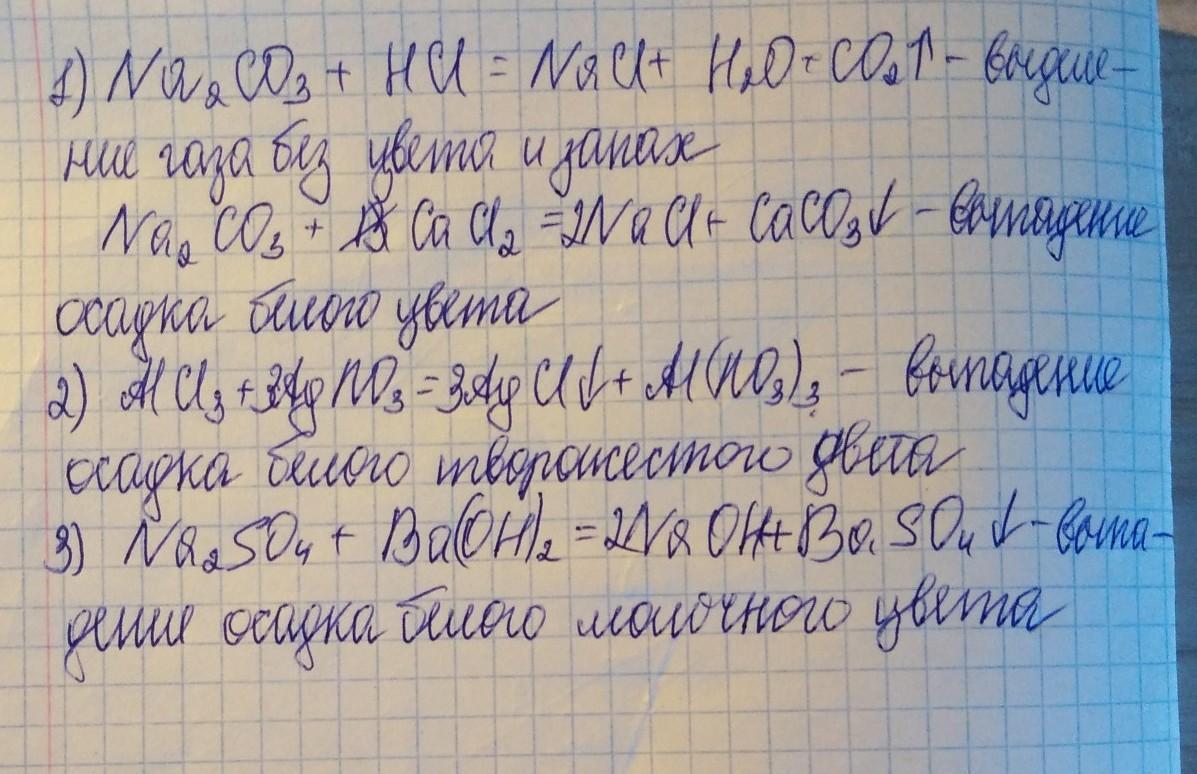 1) Na₂CO₃ + HCl = NaCl + H₂O + CO₂↑ - выделе-
ние газа без цвета и запах
Na₂CO₃ + CaCl₂ = 2NaCl + CaCO₃↓ - выпадение
осадка белого цвета
2) AlCl₃ + 3AgNO₃ = 3AgCl↓ + Al(NO₃)₃ - выпадение
осадка белого творожестого цвета
3) Na₂SO₄ + Ba(OH)₂ = 2NaOH + BaSO₄↓ - выпа-
дение осадка белого молочного цвета